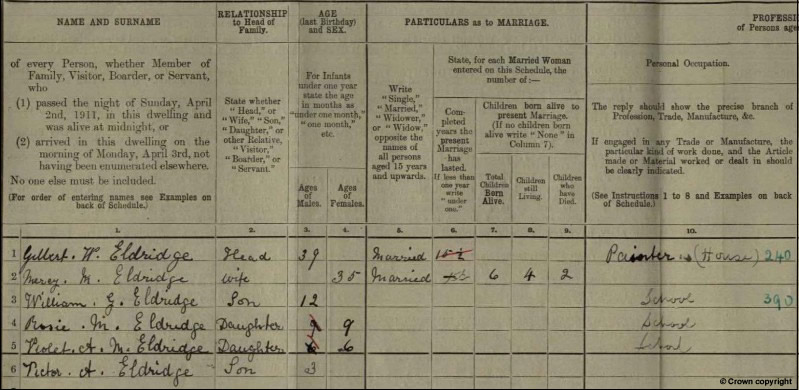 NAME AND SURNAME
of every Person, whether Member of
Family, Visitor, Boarder, or Servant,
who
(1) passed the night of Sunday, April
2nd, 1911, in this dwelling and
was alive at midnight, or
(2) arrived in this dwelling on the
morning of Monday, April 3rd, not
having been enumerated elsewhere.
No one else must be included.
(For order of entering names see Examples on
back of Schedule.)
RELATIONSHIP
to Head of
Family.
State whether
"Head," or
"Wife," "Son,"
"Daughter," or
other Relative,
"Visitor,"
"Boarder," or
"Servant."
AGE
(last Birthday)
and SEX.
For Infants
under one year
state the age
in months as
"under one month,"
"one month,"
etc.
Ages
of
Males.
Ages
of
Females.
PARTICULARS as to MARRIAGE.
Write
"Single,"
"Married,"
"Widower,"
or "Widow,"
opposite the
names of
all persons
aged 15 years
and upwards.
State, for each Married Woman
entered on this Schedule, the
number of:—
Completed
years the
present
Marriage
has
lasted.
If less than
one year
write
"under
one."
Children born alive to
present Marriage.
(If no children born
alive write "None" in
Column 7).
Total
Children
Born
Alive.
Children
still
Living.
Children
who
have
Died.
PROFESSI
of Persons age
Personal Occupation.
The reply should show the precise branch of
Profession, Trade, Manufacture, &c.
If engaged in any Trade or Manufacture, the
particular kind of work done, and the Article
made or Material worked or dealt in should
be clearly indicated.
(See Instructions 1 to 8 and Examples on back
of Schedule.)
1. 2. 3. 4. 5. 6. 7. 8. 9. 10.
1 Gilbert. W. Eldridge Head 39 Married Painter (House) 240
2 Mercy. M. Eldridge Wife 35 Married 6 4 2
3 William. G. Eldridge Son 12 School 390
4 Rosie. M. Eldridge Daughter 9 9 School
5 Violet. A. M. Eldridge Daughter 6 6 School
6 Victor. A. Eldridge Son 3
© Crown copyright